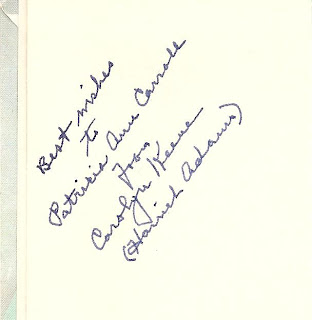 Best wishes
to
Patricia Ann Carroll
from
Carolyn Keene
(Harriet Adams)